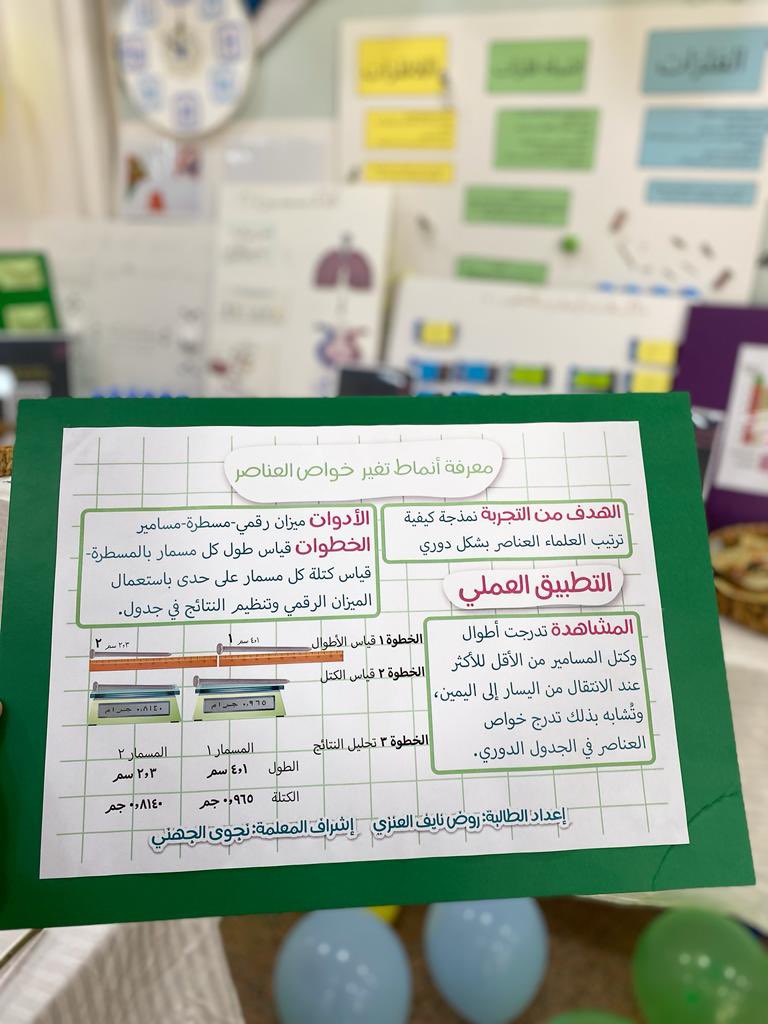 معرفة أنماط تغير خواص العناصر
الهدف من التجربة نمذجة كيفية
ترتيب العلماء العناصر بشكل دوري
الأدوات ميزان رقمي-مسطرة-مسامير
الخطوات قياس طول كل مسمار بالمسطرة-
قياس كتلة كل مسمار على حدى باستعمال
الميزان الرقمي وتنظيم النتائج في جدول.
التطبيق العملي
المشاهدة تدرجت أطوال
وكتل المسامير من الأقل للأكثر
عند الانتقال من اليسار إلى اليمين،
وتُشابه بذلك تدرج خواص
العناصر في الجدول الدوري.
الخطوة ١ قياس الأطوال
١ ٤،١ سم
٢ ٢،٣ سم
الخطوة ٢ قياس الكتل
٠،٩٦٥ جرام
٠،٨١٤٠ جرام
الخطوة ٣ تحليل النتائج
المسمار ١ المسمار ٢
الطول ٤،١ سم ٢،٣ سم
الكتلة ٠،٩٦٥ جم ٠،٨١٤٠ جم
إعداد الطالبة: روض نايف العنزي إشراف المعلمة: نجوى الجهني
الفلزات